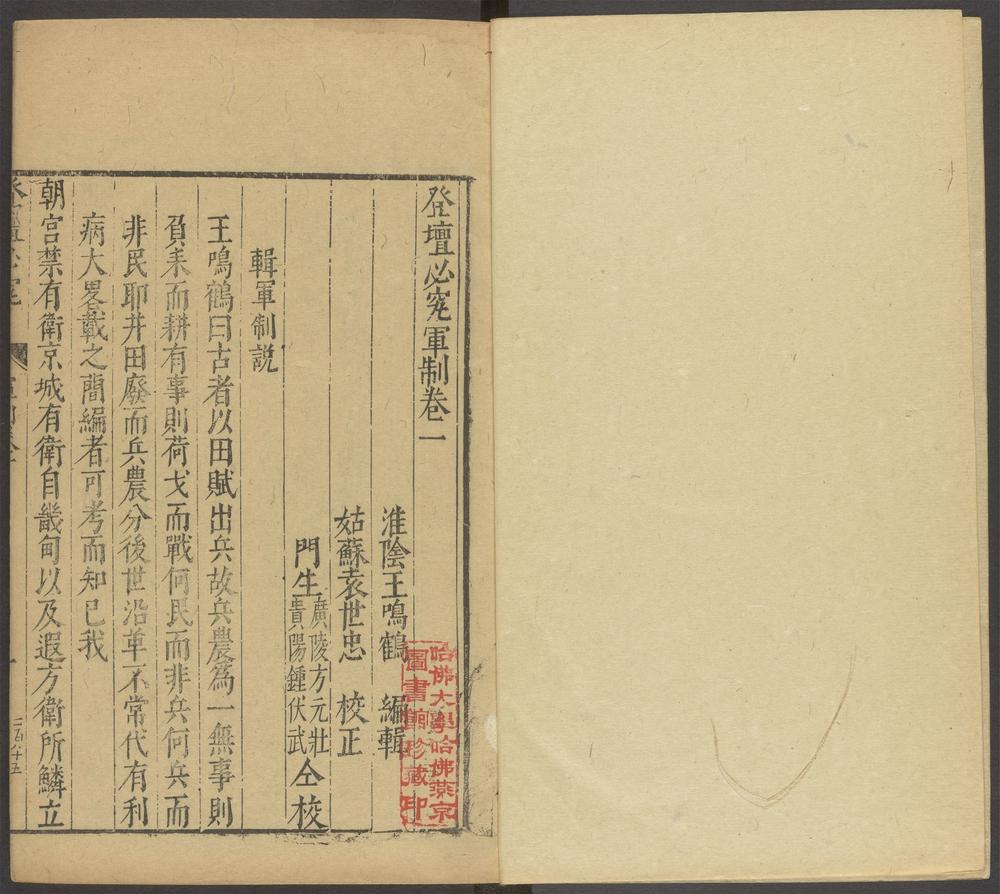 登壇必究軍制卷一
淮陰王鳴鶴 編輯
姑蘇袁世忠 校正
門生廣陵方元壯貴陽鍾伏武仝校
輯軍制說
王鳴鶴曰古者以田賦出兵故兵農爲一無事則
負耒而耕有事則荷戈而戰何民而非兵何兵而
非民耶井田廢而兵農分後世沿革不常代有利
病大畧載之簡編者可考而知已我
朝宮禁有衛京城有衛自畿甸以及遐方衛所鱗立
哈佛大學哈佛燕京
圖書館珍藏印